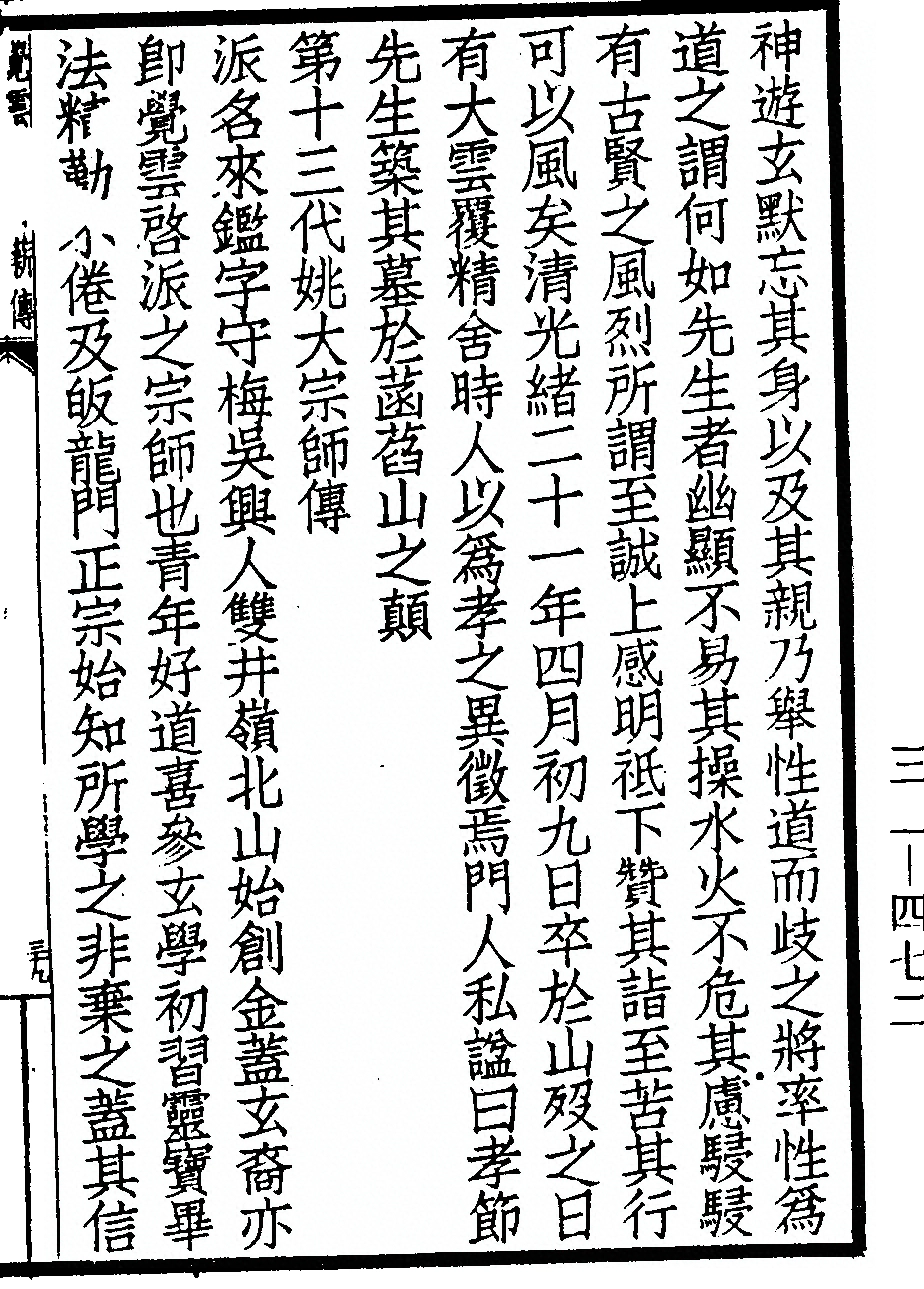 神遊玄默忘其身以及其親乃舉性道而歧之將率性爲
道之謂何如先生者幽顯不易其操水火不危其慮駸駸
有古賢之風烈所謂至誠上感明祗下贊其詣至苦其行
可以風矣清光緒二十一年四月初九日卒於山歿之日
有大雲覆精舍時人以爲孝之異徵焉門人私諡曰孝節
先生築其墓於菡萏山之顛
第十三代姚大宗師傳
派名來鑑字守梅吳興人雙井嶺北山始創金蓋玄裔亦
卽覺雲啓派之宗師也靑年好道喜參玄學初習靈寶畢
法精勤小倦及皈龍門正宗始知所學之非棄之蓋其信
覺雲
傳
三九
三一－四七二